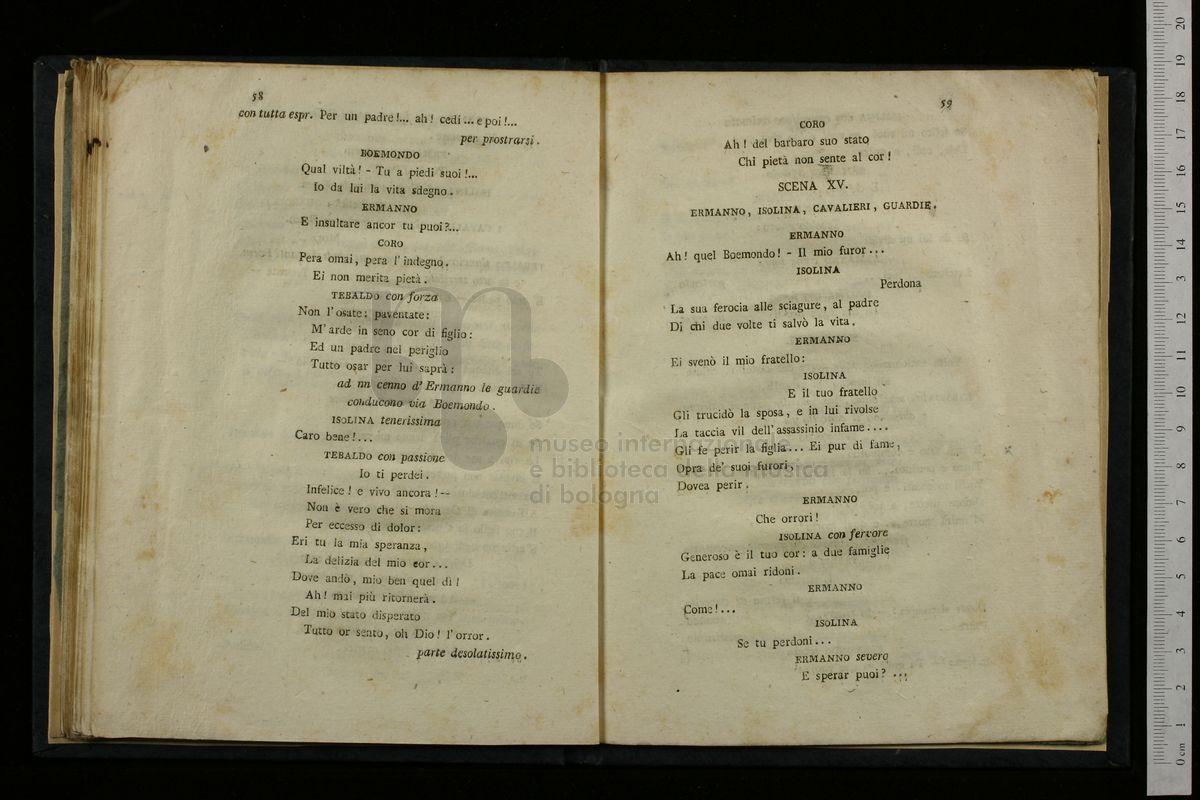 58
con tutta espr. Per un padre!... ah! cedi... e poi!...
per prostrarsi.
BOEMONDO
Qual viltà! - Tu a piedi suoi!...
Io da lui la vita sdegno.
ERMANNO
E insultare ancor tu puoi?...
CORO
Pera omai, pera l'indegno.
Ei non merita pietà.
TEBALDO con forza
Non l'osate: paventate:
M'arde in seno cor di figlio:
Ed un padre nel periglio
Tutto osar per lui saprà:
ad nn cenno d'Ermanno le guardie
conducono via Boemondo.
ISOLINA tenerissima
Caro bene!...
TEBALDO con passione
Io ti perdei.
Infelice! e vivo ancora! --
Non è vero che si mora
Per eccesso di dolor:
Eri tu la mia speranza,
La delizia del mio cor...
Dove andò, mio ben quel dì!
Ah! mai più ritornerà.
Del mio stato disperato
Tutto or sento, oh Dio! l'orror.
parte desolatissimo.
59
CORO
Ah! del barbaro suo stato
Chi pietà non sente al cor!
SCENA XV.
ERMANNO, ISOLINA, CAVALIERI, GUARDIE.
ERMANNO
Ah! quel Boemondo! - Il mio furor...
ISOLINA
Perdona
La sua ferocia alle sciagure, al padre
Di chi due volte ti salvò la vita.
ERMANNO
Ei svenò il mio fratello:
ISOLINA
E il tuo fratello
Gli trucidò la sposa, e in lui rivolse
La taccia vil dell'assassinio infame....
Gli fe perir la figlia... Ei pur di fame,
Opra de' suoi furori,
Dovea perir.
ERMANNO
Che orrori!
ISOLINA con fervore
Generoso è il tuo cor: a due famiglie
La pace omai ridoni.
ERMANNO
Come!...
ISOLINA
Se tu perdoni...
ERMANNO severo
E sperar puoi? ...
museo internazionale
e biblioteca della musica
di bologna
0 cm 1 2 3 4 5 6 7 8 9 10 11 12 13 14 15 16 17 18 19 20